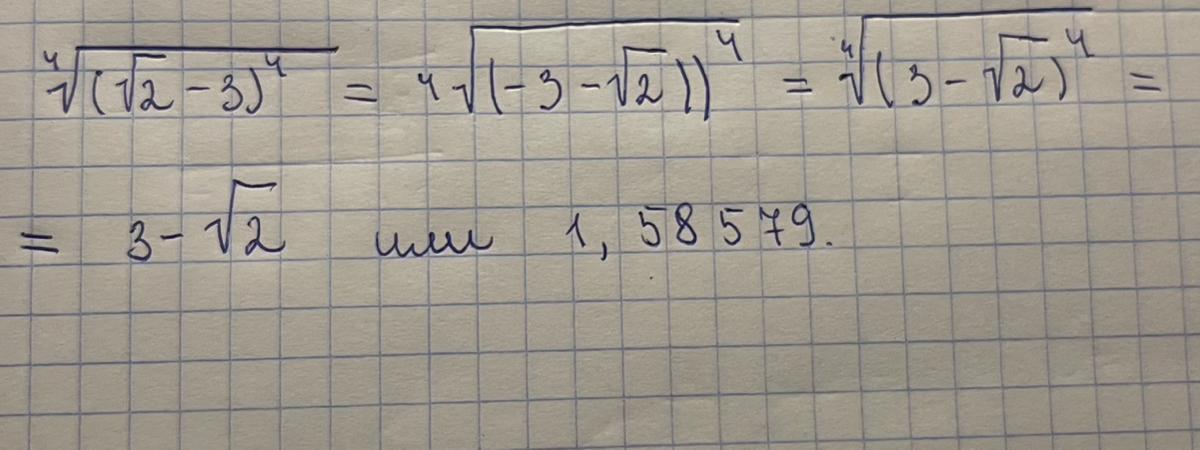 ⁴√(√2 - 3)⁴ = ⁴√(-3 - √2))⁴ = ⁴√(3 - √2)⁴ =
= 3 - √2 или 1,58579.